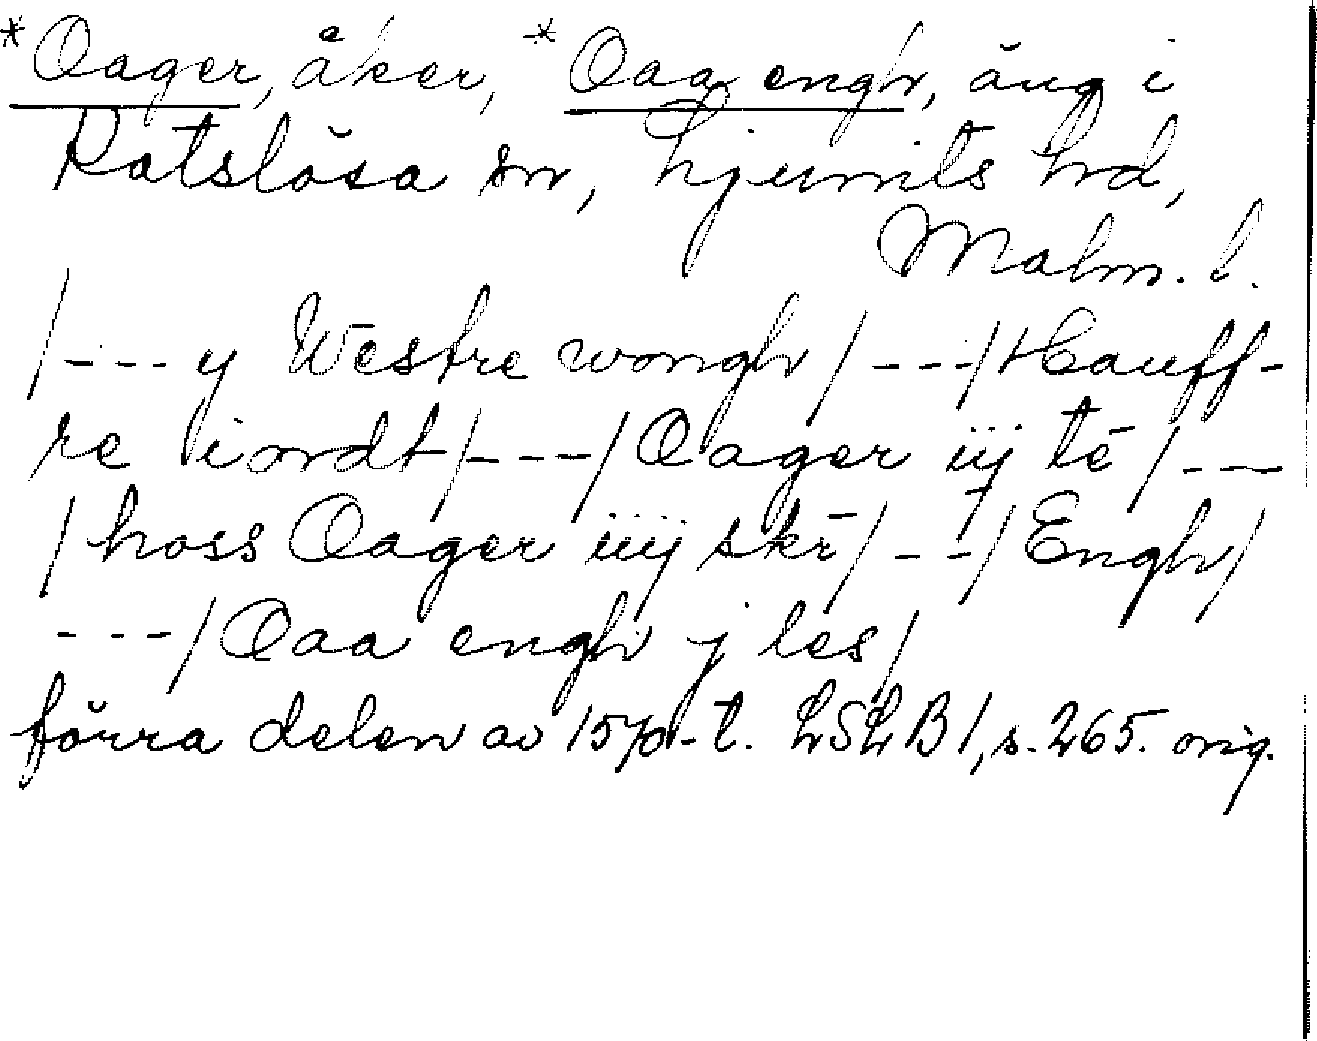 *Oager, åker, *Oaa engh, äng i
Katslösa sn, Ljunits hd,
Malm. l.
/---y Westre wongh/---/Hauff-
re iordt/---/Oager iij tē/---
/hoss Oager iiij skr̄/---/Engh/
---/Oaa engh j les/
förra delen av 1570-t. LSLB1, s. 265. orig.